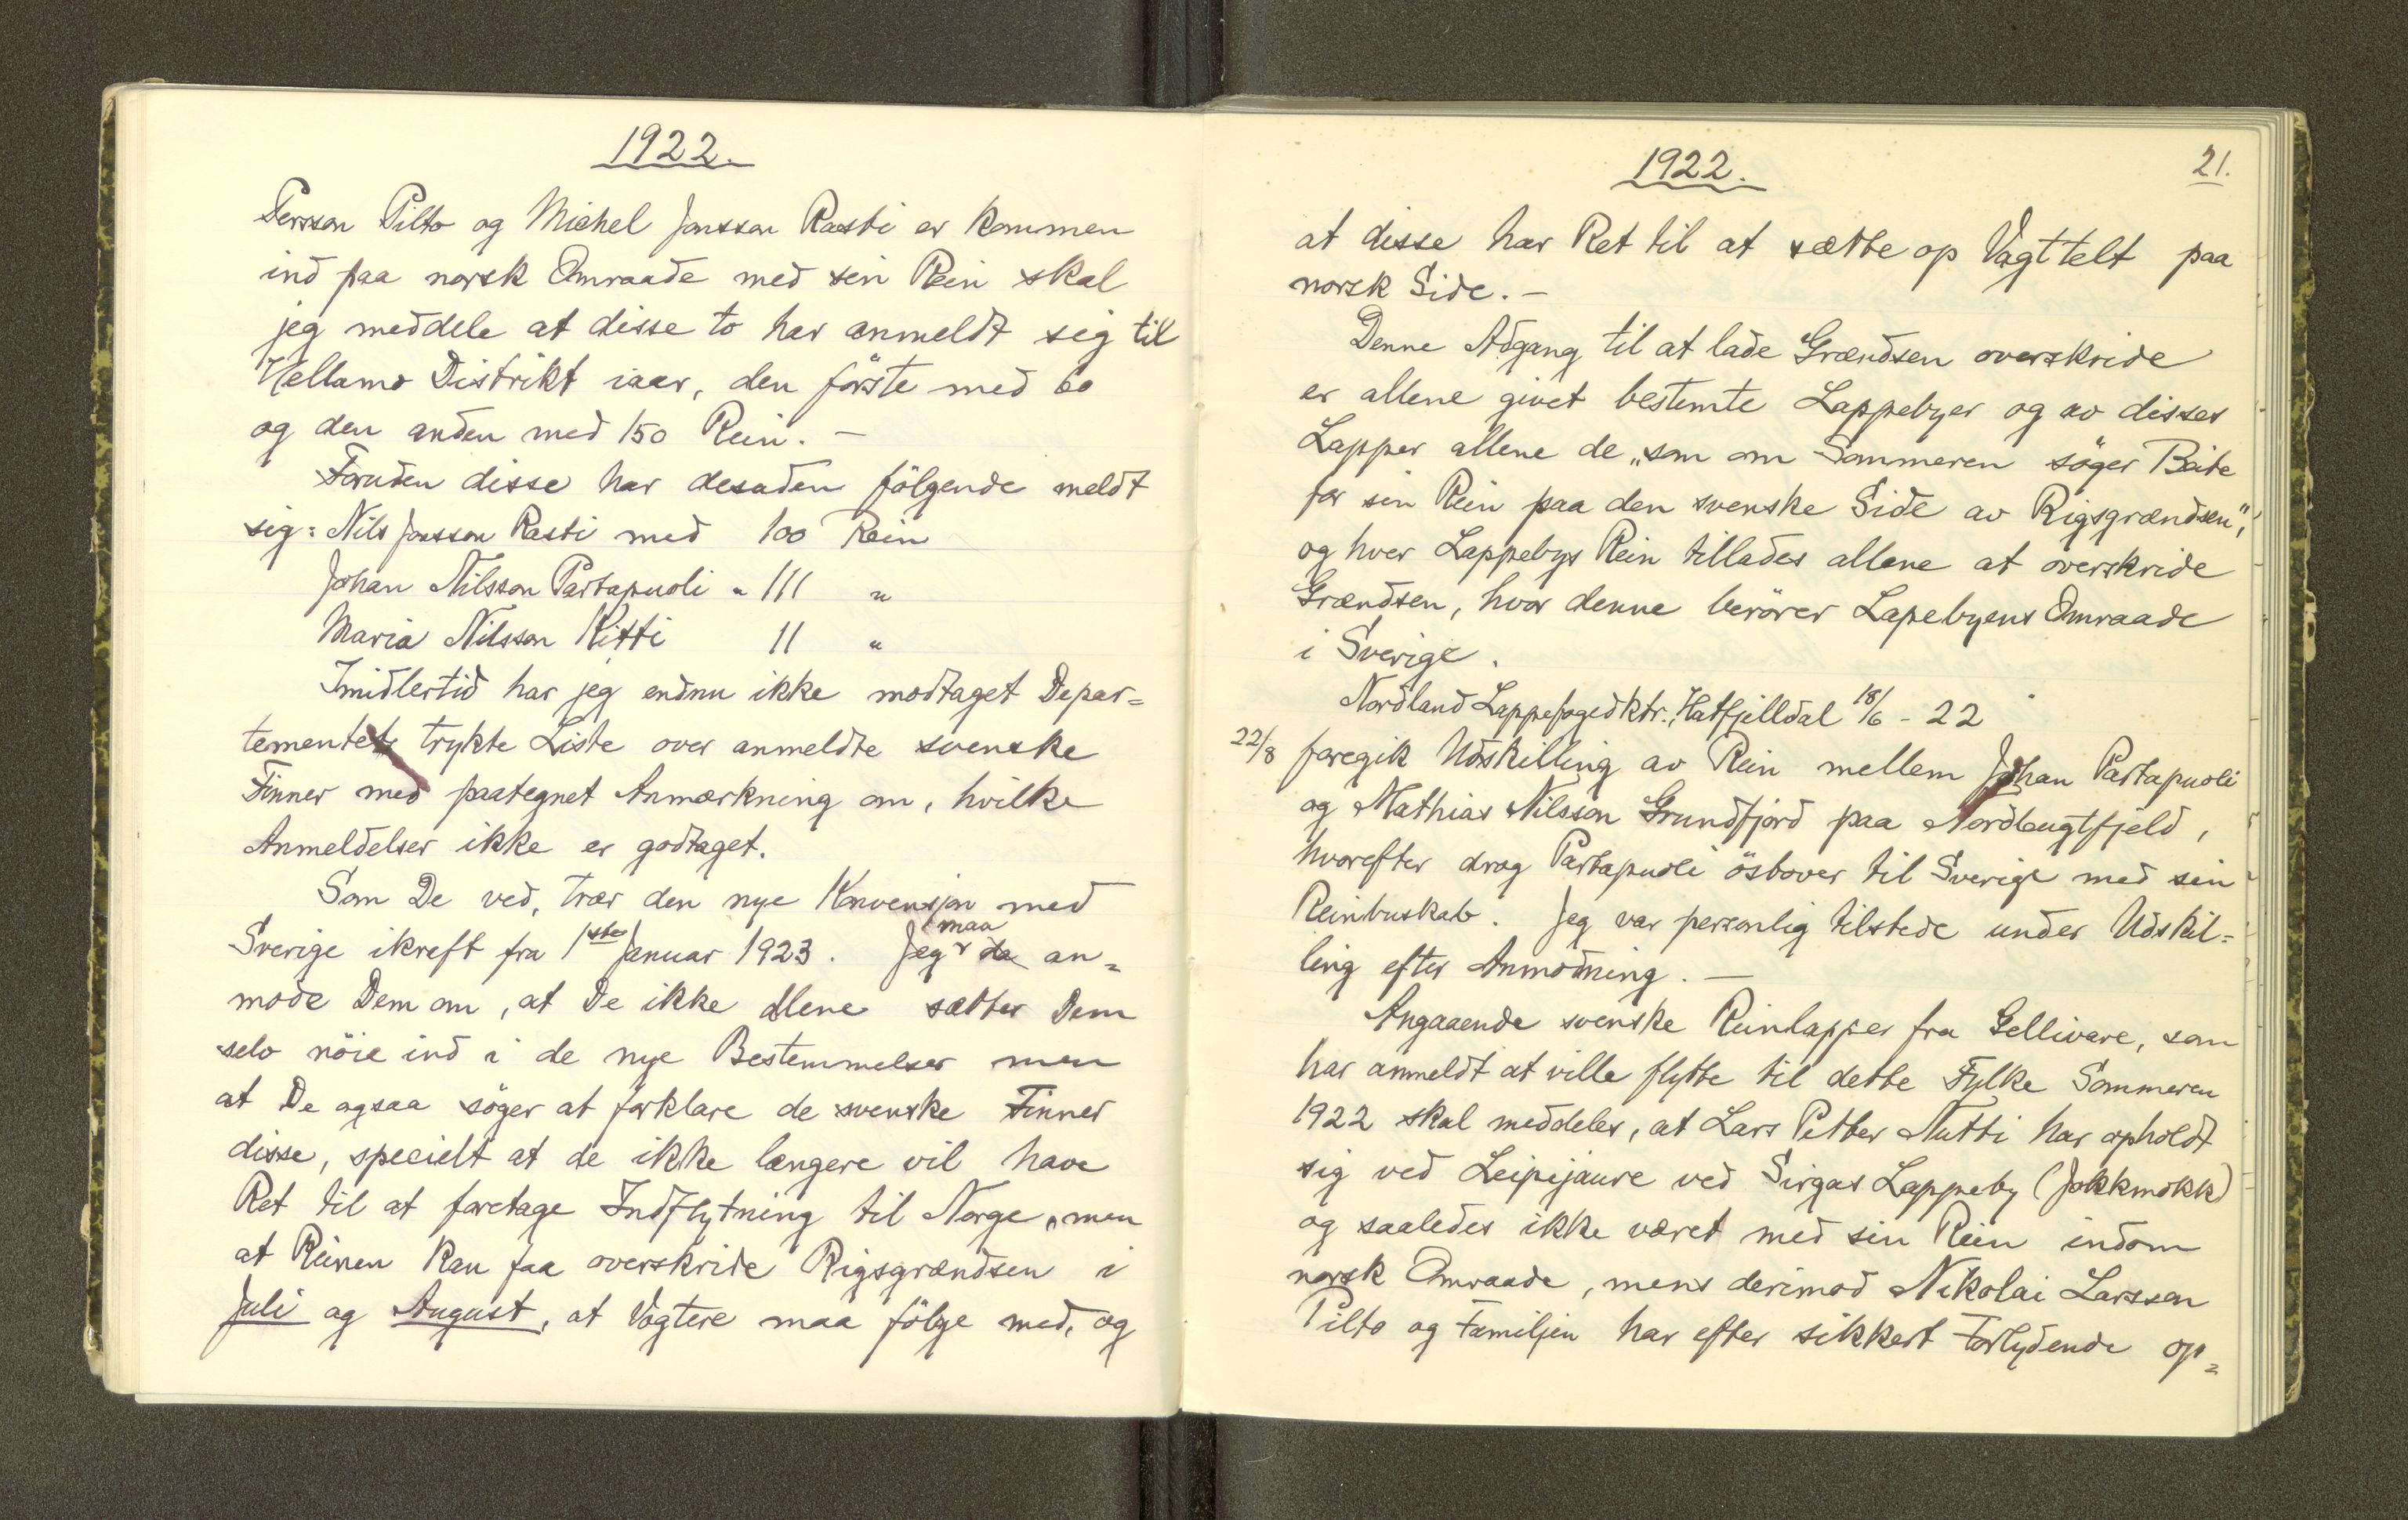 1922.
Persson Pilto og Michel Jonsson Rasti er kommen
ind paa norsk Omraade med sin Rein skal
jeg meddele at disse to har anmeldt sig til
Hellamo Distrikt iaar, den förste med 60
og den anden med 150 Rein. —
Foruden disse har desuden fölgende meldt
sig: Nils Jonsson Rasti med 100 Rein
Johan Nilsson Partapuoli " 111 "
Maria Nilsson Kitti 11 "
Imidlertid har jeg endnu ikke modtaget Depar=
tementets trykte Liste over anmeldte svenske
Finner med paategnet Anmærkning om, hvilke
Anmeldelser ikke er godtaget.
Som De ved, trær den nye Konvensjon med
Sverige ikraft fra 1ste Januar 1923. Jeg maa da an=
mode Dem om, at De ikke alene sætter Dem
selv nöie ind i de nye Bestemmelser men
at De ogsaa söger at forklare de svenske Finner
disse, specielt at de ikke længere vil have
Ret til at foretage Indflytning til Norge, men
at Reinen kan faa overskride Rigsgrændsen i
Juli og August, at Vogtere maa fölge med, og
1922.
21.
at disse har Ret til at sætte op Vagttelt paa
norsk Side. —
Denne Adgang til at lade Grændsen overskride
er allene givet bestemte Lappebyer og av disses
Lapper allene de „som om Sommeren söger Beite
for sin Rein paa den svenske Side av Rigsgrændsen",
og hver Lappebys Rein tillades allene at overskride
Grændsen, hvor denne berörer Lapebyens Omraade
i Sverige.
Nordland Lappefogedktr., Hatfjelldal 18/6 - 22
22/8 foregik Udskilling av Rein mellem Johan Partapuoli
og Mathias Nilsson Grundfjord paa Nordbugtfjeld,
hvorefter drog Partapuoli östover til Sverige med sin
Reinbuskab. Jeg var personlig tilstede under Udskil=
ling efter Anmodning. —
Angaaende svenske Reinlapper fra Gellivare, som
har anmeldt at ville flytte til dette Fylke Sommeren
1922 skal meddeles, at Lars Petter Nutti har opholdt
sig ved Leipejaure ved Sirgas Lappeby (Jokkmokk)
og saaledes ikke været med sin Rein indom
norsk Omraade, mens derimod Nikolai Larsson
Pilto og Familjen har efter sikkert Forlydende op=